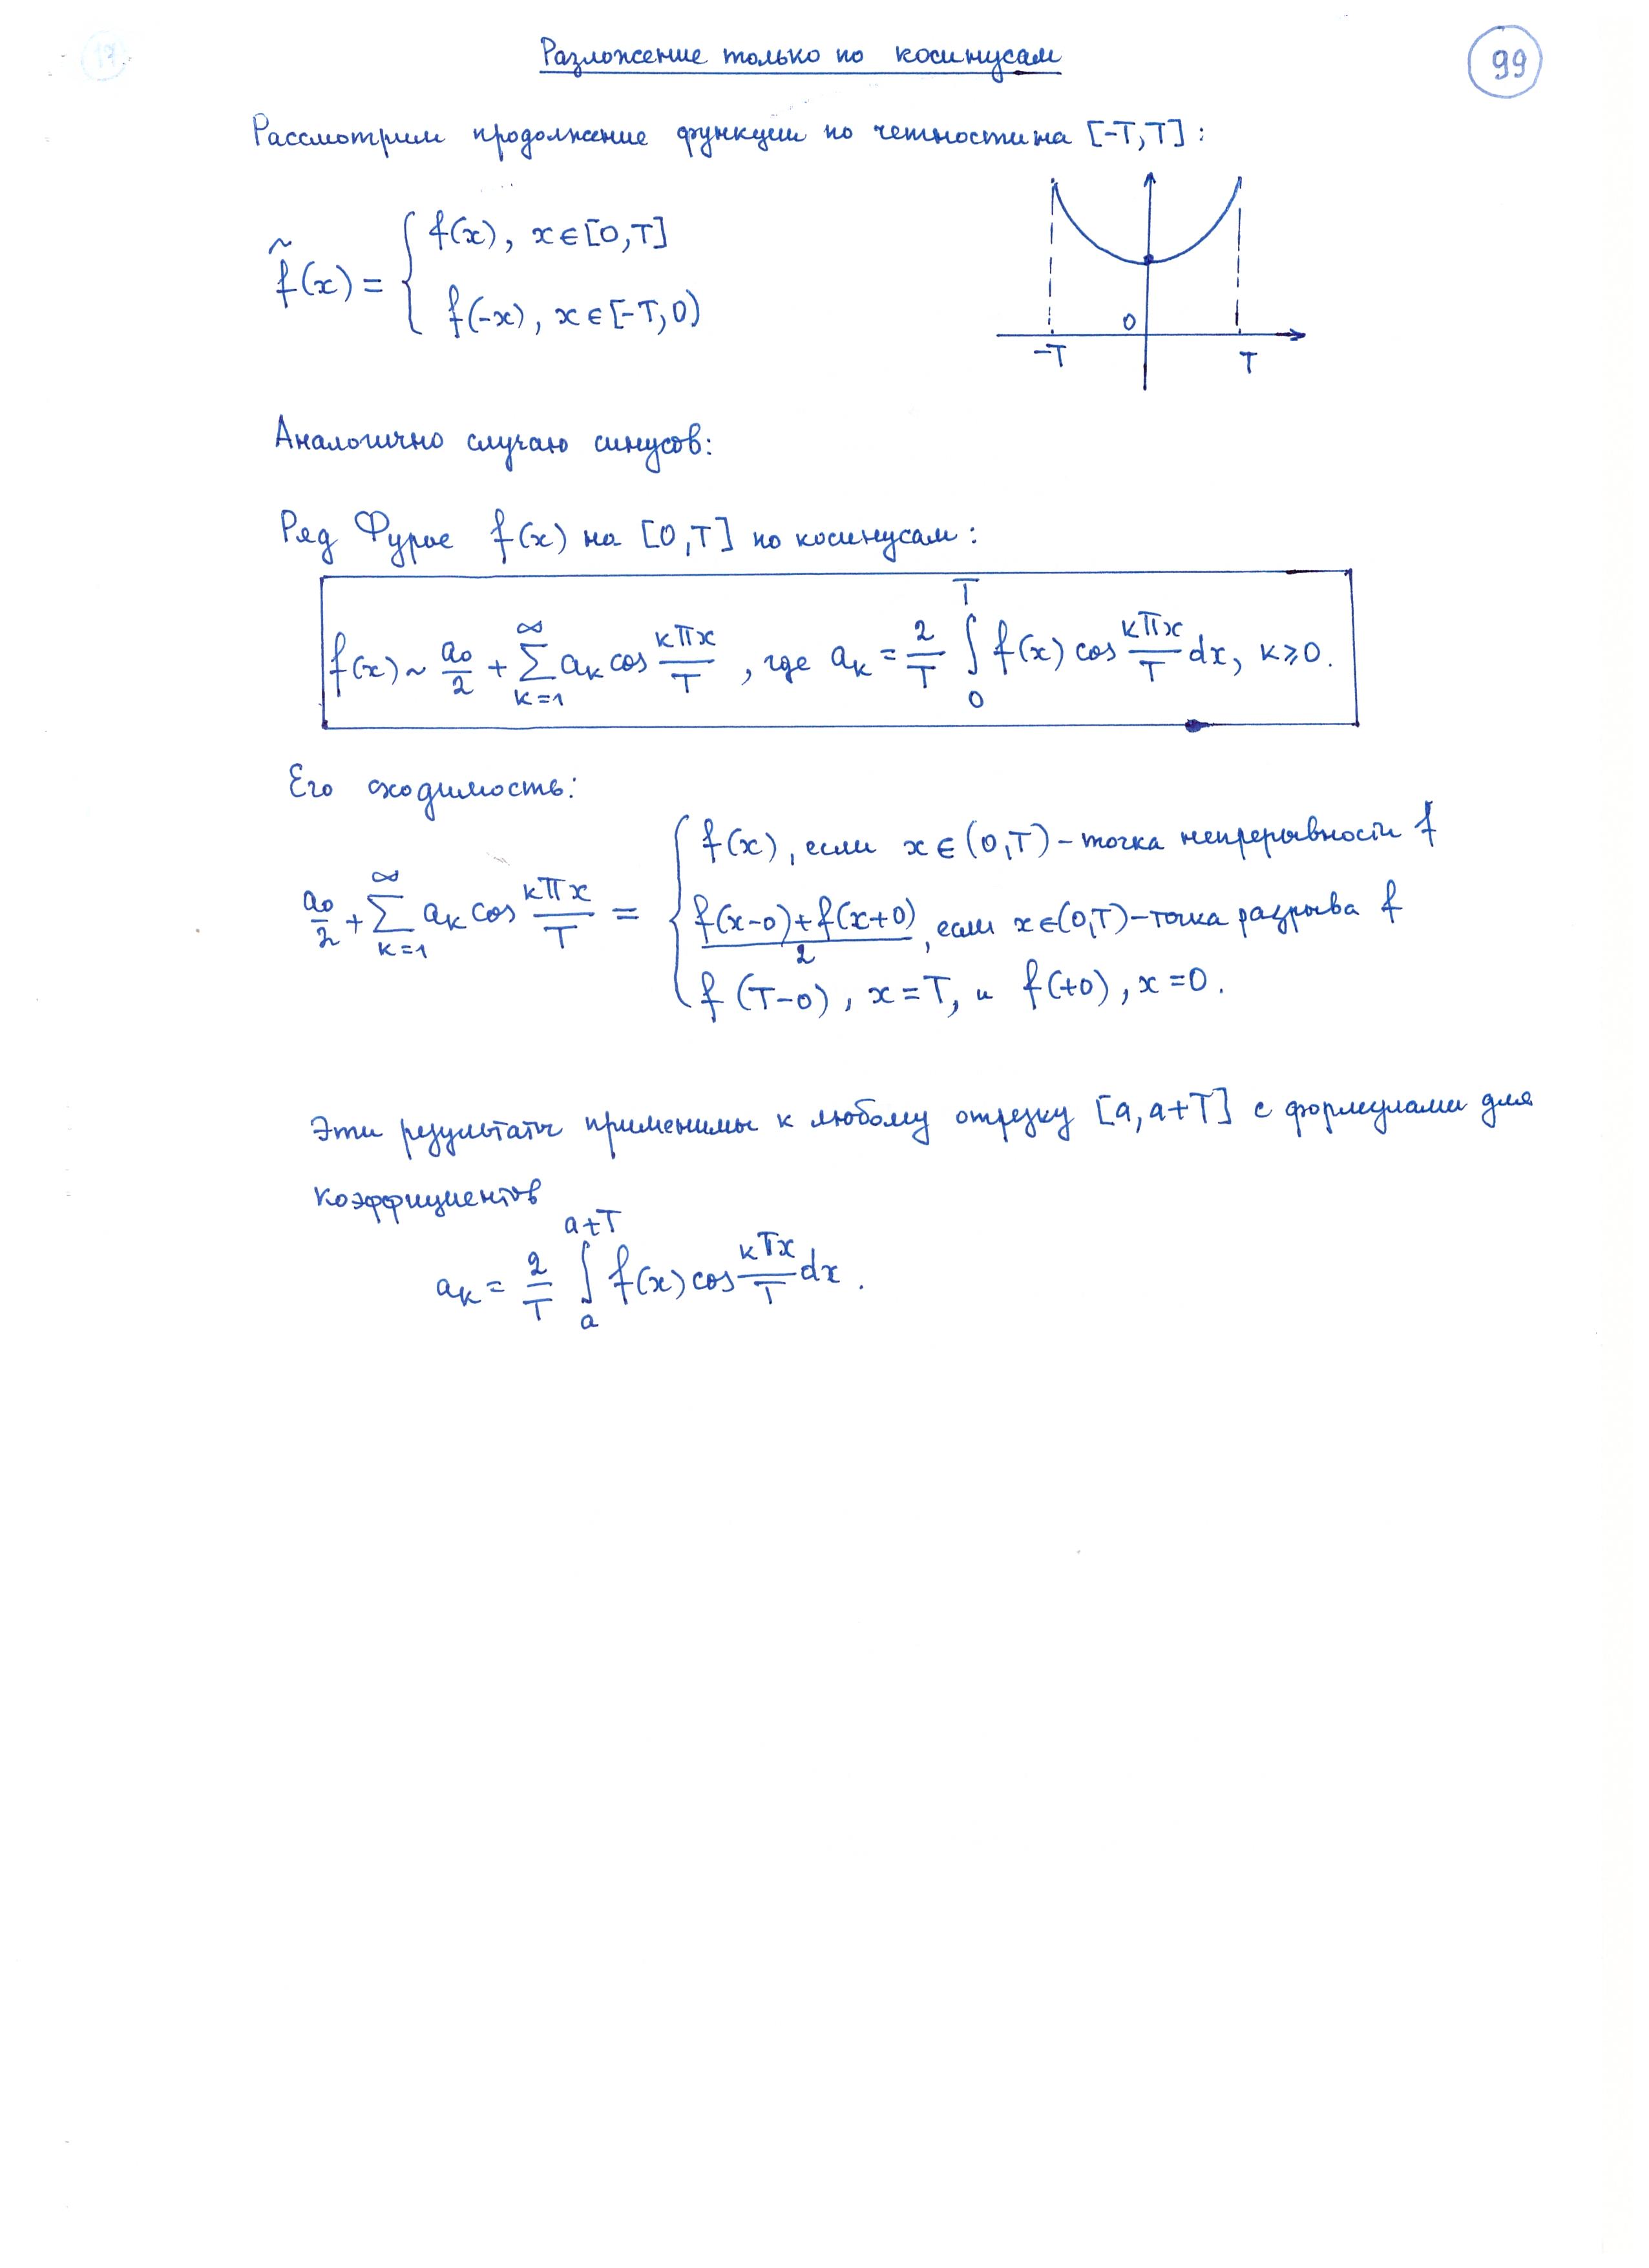 Разложение только по косинусам
99
Рассмотрим продолжение функции по четности на [-T,T]:
f̃(x) = { f(x), x∈[0,T]
f(-x), x∈[-T,0)
0
-T T
Аналогично случаю синусов:
Ряд Фурье f(x) на [0,T] по косинусам:
f(x) ~ a₀/2 + ∑_{k=1}^{∞} aₖ cos kπx/T, где aₖ = 2/T ∫_0^T f(x) cos kπx/T dx, k⩾0.
Его сходимость:
a₀/2 + ∑_{k=1}^{∞} aₖ cos kπx/T = { f(x), если x∈(0,T) – точка непрерывности f
(f(x-0)+f(x+0))/2, если x∈(0,T) – точка разрыва f
f(T-0), x=T, и f(+0), x=0.
Эти результаты применимы к любому отрезку [a,a+T] с формулами для
коэффициентов
aₖ = 2/T ∫_a^{a+T} f(x) cos kTx/T dx.